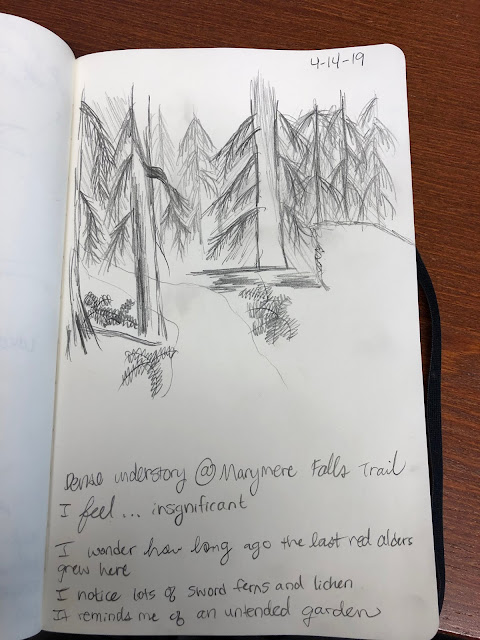 4-14-19
Dense understory @ Marymere Falls Trail
I feel... insgnificant
I wonder how long ago the last red alders
grew here
I notice lots of sword ferns and lichen
It reminds me of an untended garden